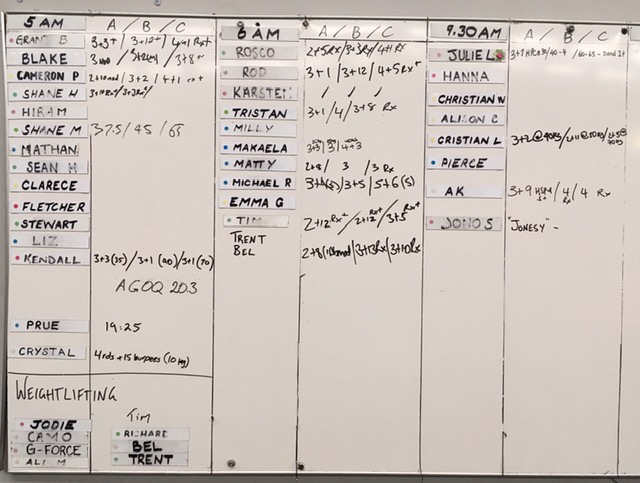 5 AM A / B / C
GRANT B
BLAKE
CAMERON P
SHANE H
HIRAM
SHANE M 37.5 / 45 / 65
NATHAN
SEAN M
CLARECE
FLETCHER
STEWART
LIZ
KENDALL 3+3 (35) / 3+1 (40) / 3+1 (70)
AGOQ 20.3
PRUE 19:25
CRYSTAL 4 rds + 15 burpees (10kg)
WEIGHTLIFTING
JODIE
CAMO
G-FORCE
ALI M
Tim
RICHARD
BEL
TRENT
6 AM A / B / C
ROSCO 2+5 Rx / 3+3 Rx / 4+11 Rx
ROD 3+1 / 3+12 / 4+5 Rx+
KARSTEN / / /
TRISTAN 3+1 / 4 / 3+8 Rx
MILLY
MAKAELA
MATTY 2+8 / 3 / 3 Rx
MICHAEL R 3+5 / 5+6 (5)
EMMA G
TIM 2+12 Rx+ / 2+12 Rx+ / 3+5 Rx+
TRENT
BEL 3+13 Rx / 3+10 Rx
9.30AM A / B / C
JULIE L
HANNA
CHRISTIAN W
ALISON C
CRISTIAN L
PIERCE
AK 3+9 / 4 Rx / 4 Rx
JONO S "JONESY" -